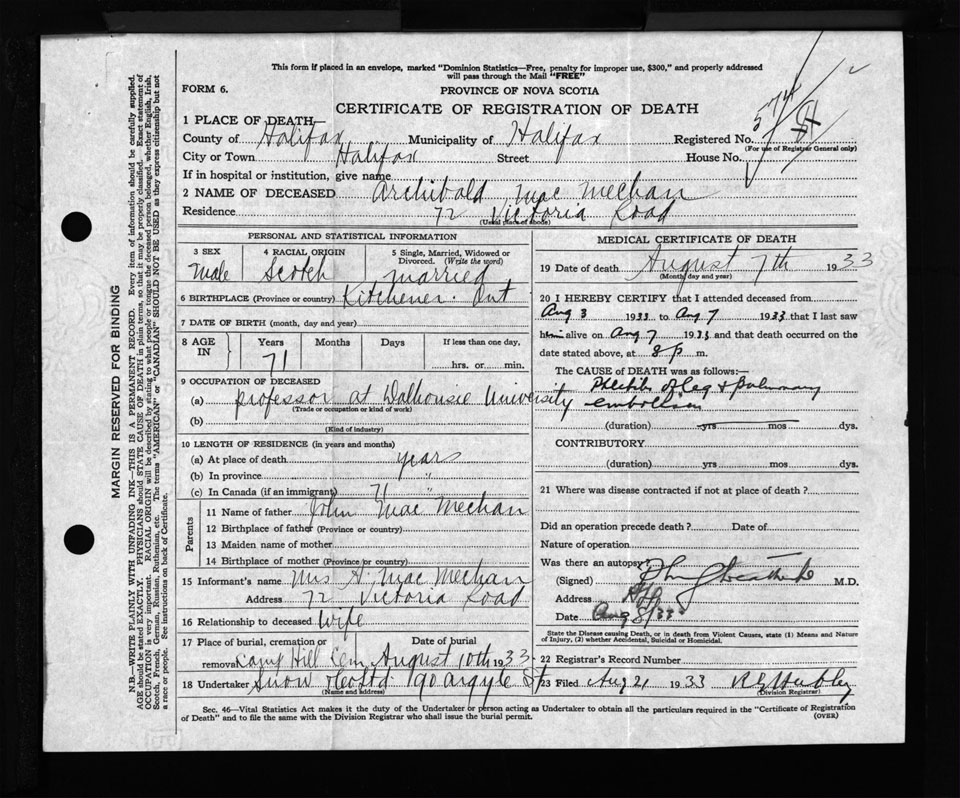 This form if placed in an envelope, marked "Dominion Statistics—Free, penalty for improper use, $300," and properly addressed
will pass through the Mail "FREE"
FORM 6.
PROVINCE OF NOVA SCOTIA
CERTIFICATE OF REGISTRATION OF DEATH
1 PLACE OF DEATH—
County of Halifax Municipality of Halifax Registered No.
(For use of Registrar General only)
City or Town Halifax Street House No.
If in hospital or institution, give name
2 NAME OF DECEASED Archibald Mac Mechan
Residence 72 Victoria Road
(Usual place of abode)
PERSONAL AND STATISTICAL INFORMATION
3 SEX 4 RACIAL ORIGIN 5 Single, Married, Widowed or
Divorced. (Write the word)
Male Scotch married
6 BIRTHPLACE (Province or country) Kitchener. Ont
7 DATE OF BIRTH (month, day and year)
8 AGE IN Years Months Days If less than one day,
71 hrs. or minutes
9 OCCUPATION OF DECEASED
(a) professor at Dalhousie University
(Trade or occupation or kind of work)
(b)
(Kind of industry)
10 LENGTH OF RESIDENCE (in years and months)
(a) At place of death years
(b) In province
(c) In Canada (if an immigrant) " "
Parents
11 Name of father John Mac Mechan
12 Birthplace of father (Province or country)
13 Maiden name of mother
14 Birthplace of mother (Province or country)
15 Informant's name Mrs A. Mac Mechan
Address 72 Victoria Road
16 Relationship to deceased Wife
17 Place of burial, cremation or Date of burial
removal Camp Hill Cem August 10th 1933
18 Undertaker Snow & Co Ltd 90 Argyle St
(Name and address)
MEDICAL CERTIFICATE OF DEATH
19 Date of death August 7th 1933
(Month, day and year)
20 I HEREBY CERTIFY that I attended deceased from
Aug 3 1933 to Aug 7 1933 that I last saw
him alive on Aug 7 1933 and that death occurred on the
date stated above, at 8 p m.
The CAUSE OF DEATH was as follows:—
Phlebitis of leg & pulmonary
embolism
(duration) yrs mos dys.
CONTRIBUTORY
(duration) yrs mos dys.
21 Where was disease contracted if not at place of death?
Did an operation precede death? Date of
Nature of operation
Was there an autopsy?
(Signed) M.D.
Address Hfx
Date Aug 8/33
State the Disease causing Death, or in death from Violent Causes, state (1) Means and Nature
of Injury, (2) whether Accidental, Suicidal or Homicidal.
22 Registrar's Record Number
23 Filed Aug 21 1933
(Division Registrar)
Sec. 46—Vital Statistics Act makes it the duty of the Undertaker or person acting as Undertaker to obtain all the particulars required in the "Certificate of Registration
of Death" and to file the same with the Division Registrar who shall issue the burial permit.
(OVER)
MARGIN RESERVED FOR BINDING
N.B.—WRITE PLAINLY WITH UNFADING INK—THIS IS A PERMANENT RECORD. Every item of information should be carefully supplied.
AGE should be stated EXACTLY. PHYSICIANS should STATE CAUSE OF DEATH in plain terms, so that it may be properly classified. Exact statement of
OCCUPATION is very important. RACIAL ORIGIN will be described by stating to what people or tongue the deceased person belonged, whether English, Irish,
Scotch, French, German, Russian, Ruthenian, etc. The terms "AMERICAN" or "CANADIAN" SHOULD NOT BE USED as they express citizenship but not
a race or people. See instructions on back of Certificate.